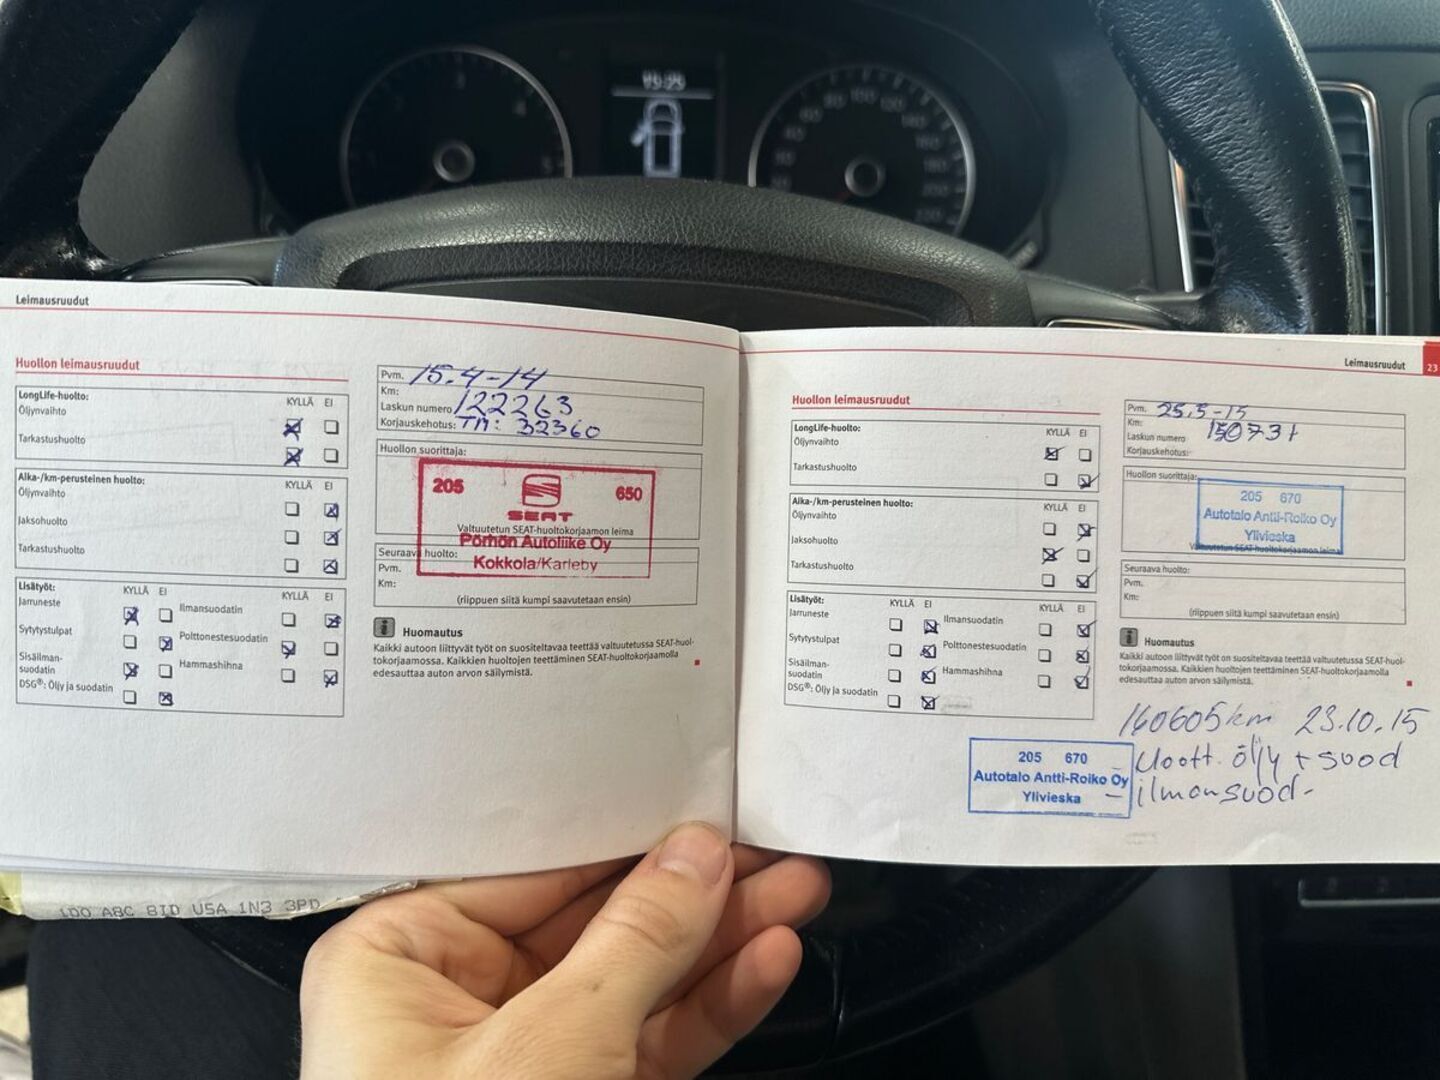 15:25
80
100
120
140
160
180
200
220
Leimausruudut
Huollon leimausruudut
LongLife-huolto:
KYLLÄ EI
Öljynvaihto
Tarkastushuolto
Aika-/km-perusteinen huolto:
KYLLÄ EI
Öljynvaihto
Jaksohuolto
Tarkastushuolto
Lisätyöt:
KYLLÄ EI
KYLLÄ EI
Jarruneste
Ilmansuodatin
Sytytystulpat
Polttonestesuodatin
Sisäilman-
suodatin
Hammashihna
DSG®: Öljy ja suodatin
Pvm. 15.4-14
Km: 122263
Laskun numero
Korjauskehotus: TM: 32360
Huollon suorittaja:
205 650
SEAT
Valtuutetun SEAT-huoltokorjaamon leima
Pörhön Autoliike Oy
Kokkola/Karleby
Seuraava huolto:
Pvm.
Km:
(riippuen siitä kumpi saavutetaan ensin)
Huomautus
Kaikki autoon liittyvät työt on suositeltavaa teettää valtuutetussa SEAT-huol-
tokorjaamossa. Kaikkien huoltojen teettäminen SEAT-huoltokorjaamolla
edesauttaa auton arvon säilymistä.
LDO ABC BID USA 1N3 3PD
Leimausruudut 23
Huollon leimausruudut
LongLife-huolto:
KYLLÄ EI
Öljynvaihto
Tarkastushuolto
Aika-/km-perusteinen huolto:
KYLLÄ EI
Öljynvaihto
Jaksohuolto
Tarkastushuolto
Lisätyöt:
KYLLÄ EI
KYLLÄ EI
Jarruneste
Ilmansuodatin
Sytytystulpat
Polttonestesuodatin
Sisäilman-
suodatin
Hammashihna
DSG®: Öljy ja suodatin
Pvm. 25.5-15
Km: 150731
Laskun numero
Korjauskehotus:
Huollon suorittaja:
205 670
Autotalo Antti-Roiko Oy
Ylivieska
Valtuutetun SEAT-huoltokorjaamon leima
Seuraava huolto:
Pvm.
Km:
(riippuen siitä kumpi saavutetaan ensin)
Huomautus
Kaikki autoon liittyvät työt on suositeltavaa teettää valtuutetussa SEAT-huol-
tokorjaamossa. Kaikkien huoltojen teettäminen SEAT-huoltokorjaamolla
edesauttaa auton arvon säilymistä.
160605 km 23.10.15
- öljy + suod
- ilmansuod-
205 670
Autotalo Antti-Roiko Oy
Ylivieska